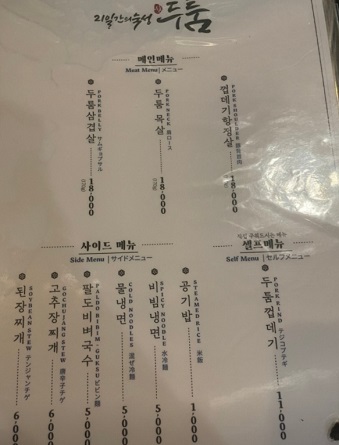 21일간의숙성 두툼
메인메뉴
Meat Menu | メニュー
두툼삼겹살
PORK BELLY サムギョプサル
18,000
두툼목살
PORK NECK 肩ロース
18,000
껍데기항정살
PORK SHOULDER
18,000
사이드 메뉴
Side Menu | サイドメニュー
된장찌개
SOYBEAN STEW テンジャンチゲ
6,000
고추장찌개
GOCHUJANG STEW 唐辛子チゲ
6,000
팔도비빔국수
PALDO BIBIM-GUKSU ビビン麺
5,000
물냉면
COLD NOODLES 混ぜ冷麺
5,000
비빔냉면
SPICY NOODLE 水冷麺
5,000
공기밥
STEAMED RICE 米飯
1,000
셀프메뉴
Self Menu | セルフメニュー
두툼껍데기
PORK RIND テジコプテギ
11,000